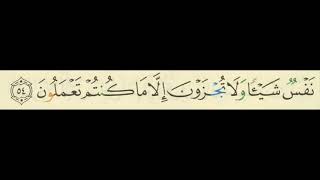 نَفْسٌ شَيْـًٔا وَلَا تُجْزَوْنَ إِلَّا مَا كُنتُمْ تَعْمَلُونَ ٥٤